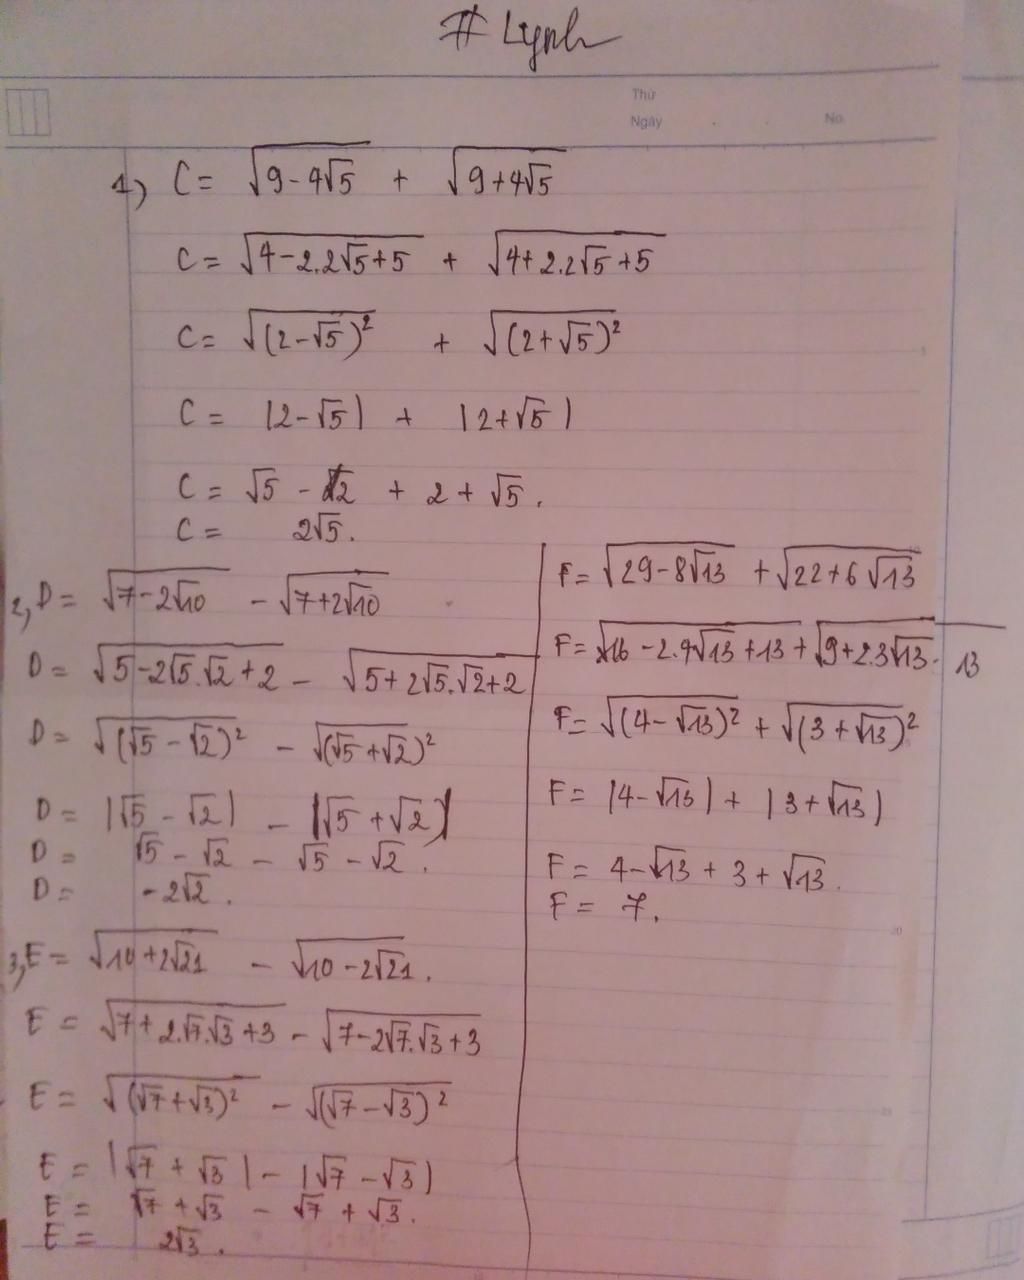 # Lynh
Thứ
Ngày . . No.
1) C = √(9-4√5) + √(9+4√5)
C = √(4-2.2√5+5) + √(4+2.2√5+5)
C = √((2-√5)²) + √((2+√5)²)
C = |2-√5| + |2+√5|
C = √5 - 2 + 2 + √5.
C = 2√5.
2, D = √(7-2√10) - √(7+2√10)
D = √(5-2√5.√2+2) - √(5+2√5.√2+2)
D = √((√5-√2)²) - √((√5+√2)²)
D = |√5-√2| - |√5+√2|
D = √5 - √2 - √5 - √2.
D = -2√2.
3, E = √(10+2√21) - √(10-2√21).
E = √(7+2.√7.√3+3) - √(7-2√7.√3+3)
E = √((√7+√3)²) - √((√7-√3)²)
E = |√7+√3| - |√7-√3|
E = √7 + √3 - √7 + √3.
E = 2√3.
F = √(29-8√13) + √(22+6√13)
F = √(16-2.4√13+13) + √(9+2.3√13+13)
F = √((4-√13)²) + √((3+√13)²)
F = |4-√13| + |3+√13|
F = 4-√13 + 3 + √13.
F = 7.